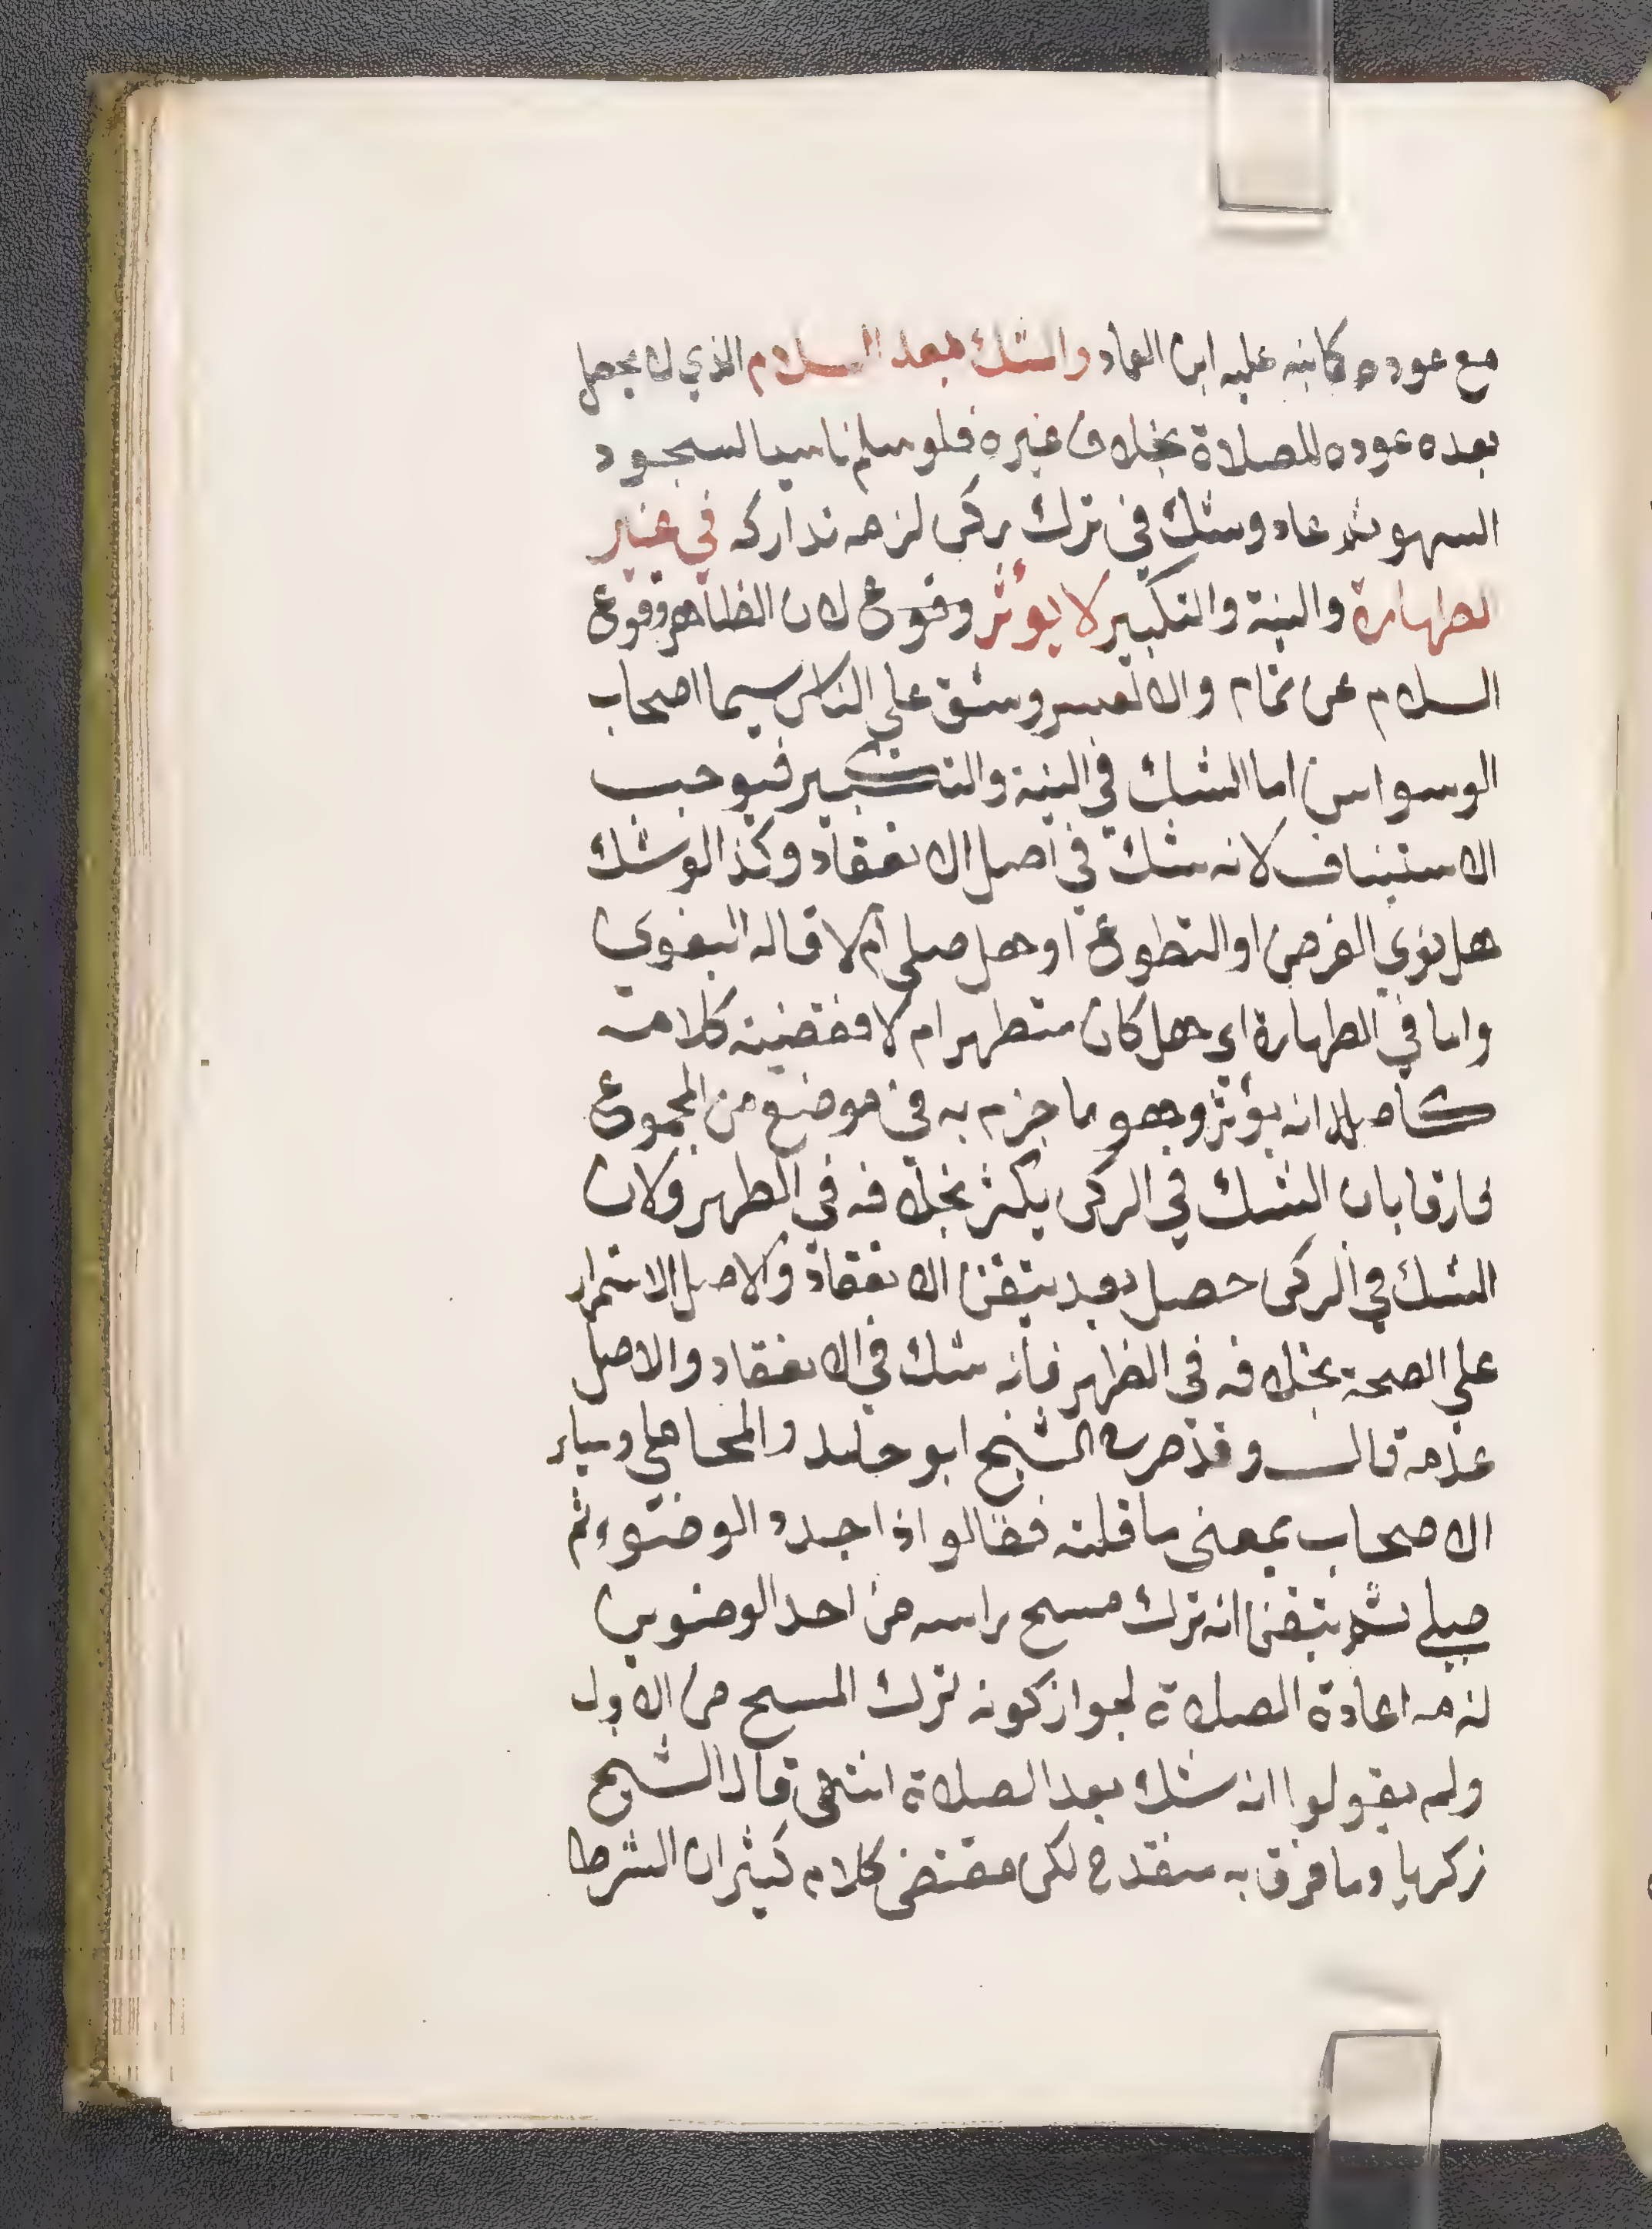 مع عوده كما نبه عليه ابن العماد والشك بعد السلام الذي لا يحصل
بعده عوده للصلاة بخلاف غيره فلو سلم ناسيا لسجود
السهو ثم عاد وشك في ترك ركن لزمه تداركه في غير
الطهارة والنية والتكبير لا يؤثر وقوع لان الظاهر وقوع
السلام عن تمام والا لعسر وشق على الناس سيما اصحاب
الوسواس اما الشك في النية والتكبير فيوجب
الاستيناف لانه شك في اصل الانعقاد وكذا لو شك
هل نوي الفرض او التطوع او هل صلى ام لا قاله البغوي
واما في الطهارة اي هل كان متطهرا م لا فقضية كلامه
كاصلا انه يؤثر وهو ما جزم به في موضع من المجموع
فارقا بان الشك في الركن يكثر بخلافه في الطهر ولان
الشك في الركن حصل بعد تيقن الانعقاد والاصل الاستمرار
على الصحة بخلافه في الطهر فانه شك في الانعقاد والاصل
عدمه قال وقد صرح الشيخ ابو حامد والمحاملي وساير
الاصحاب بمعنى ما قلته فقالوا اذا جدد الوضوء ثم
صلى ثم تيقن انه ترك مسح راسه من احد الوضوين
لزمه اعادة الصلاة لجواز كونه ترك المسح من الاول
ولم يقولوا انه شك بعد الصلاة انتهى قال الشيخ
زكريا وما فرق به منقدح لكن مقتضى كلام كثير ان الشرط